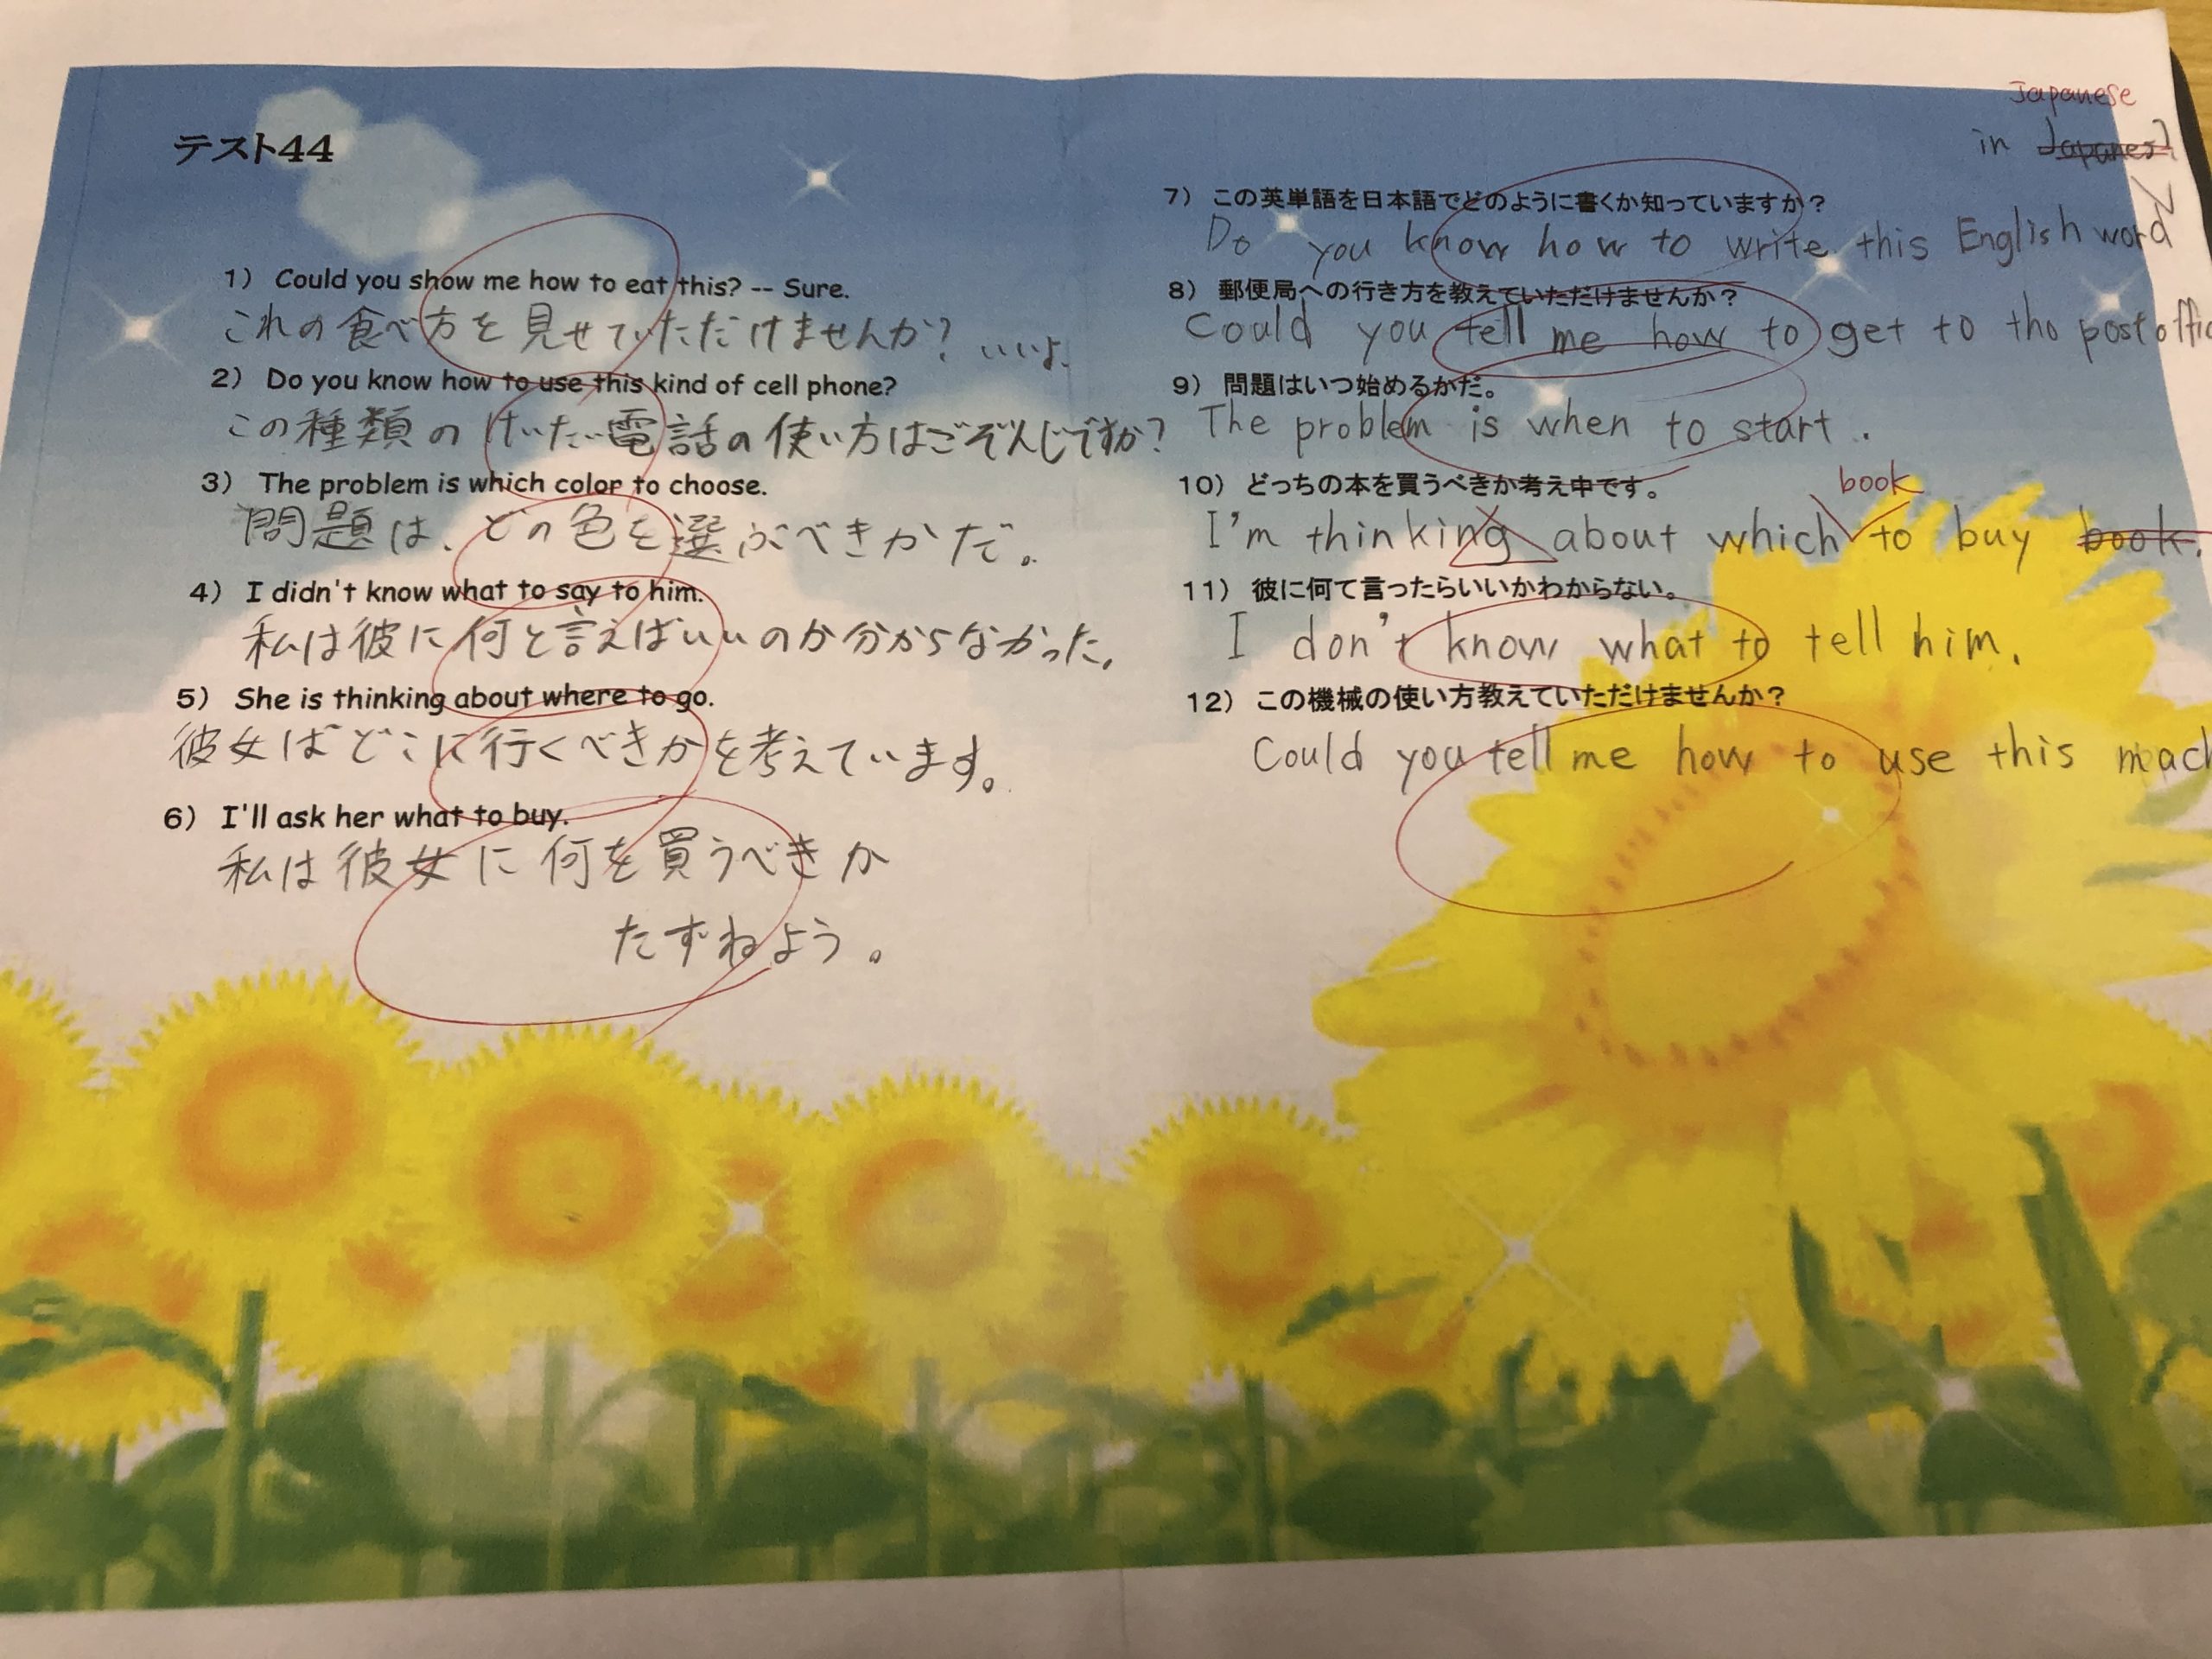 テスト44
1) Could you show me how to eat this? -- Sure.
これの食べ方を見せていただけませんか? いいよ.
2) Do you know how to use this kind of cell phone?
この種類のけいたい電話の使い方はごぞんじですか?
3) The problem is which color to choose.
問題は、どの色を選ぶべきかだ。
4) I didn't know what to say to him.
私は彼に何と言えばいいのか分からなかった.
5) She is thinking about where to go.
彼女はどこに行くべきかを考えています。
6) I'll ask her what to buy.
私は彼女に何を買うべきか
たずねよう。
Japanese
in
7) この英単語を日本語でどのように書くか知っていますか?
Do you know how to write this English word
8) 郵便局への行き方を教えていただけませんか?
Could you tell me how to get to the post offic
9) 問題はいつ始めるかだ。
The problem is when to start.
10) どっちの本を買うべきか考え中です。
book
I'm thinking about which to buy book.
11) 彼に何て言ったらいいかわからない。
I don't know what to tell him.
12) この機械の使い方教えていただけませんか?
Could you tell me how to use this mach